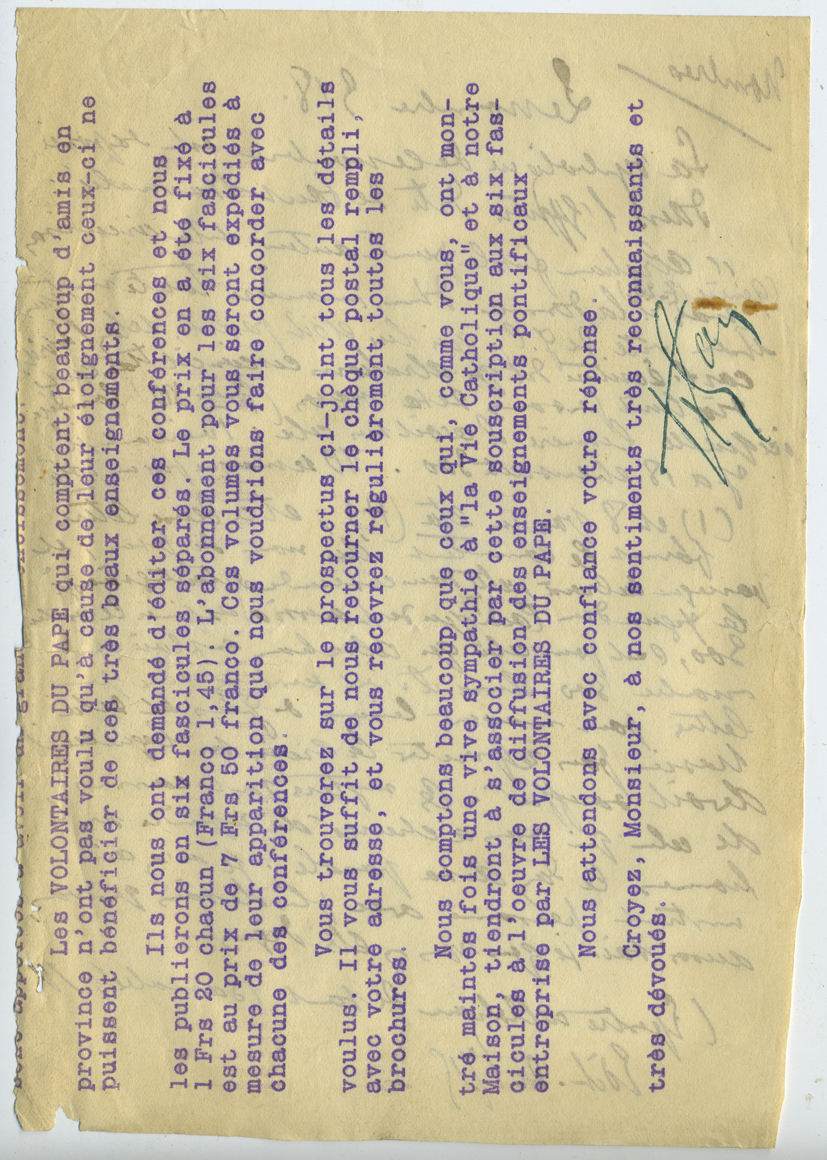 Les VOLONTAIRES DU PAPE qui comptent beaucoup d'amis en
province n'ont pas voulu qu'à cause de leur éloignement ceux-ci ne
puissent bénéficier de ces très beaux enseignements.
Ils nous ont demandé d'éditer ces conférences et nous
les publierons en six fascicules séparés. Le prix en a été fixé à
1 Frs 20 chacun (Franco 1,45). L'abonnement pour les six fascicules
est au prix de 7 Frs 50 franco. Ces volumes vous seront expédiés à
mesure de leur apparition que nous voudrions faire concorder avec
chacune des conférences.
Vous trouverez sur le prospectus ci-joint tous les détails
voulus. Il vous suffit de nous retourner le chèque postal rempli,
avec votre adresse, et vous recevrez régulièrement toutes les
brochures.
Nous comptons beaucoup que ceux qui, comme vous, ont mon-
tré maintes fois une vive sympathie à "la Vie Catholique" et à notre
Maison, tiendront à s'associer par cette souscription aux six fas-
cicules à l'oeuvre de diffusion des enseignements pontificaux
entreprise par LES VOLONTAIRES DU PAPE.
Nous attendons avec confiance votre réponse.
Croyez, Monsieur, à nos sentiments très reconnaissants et
très dévoués.